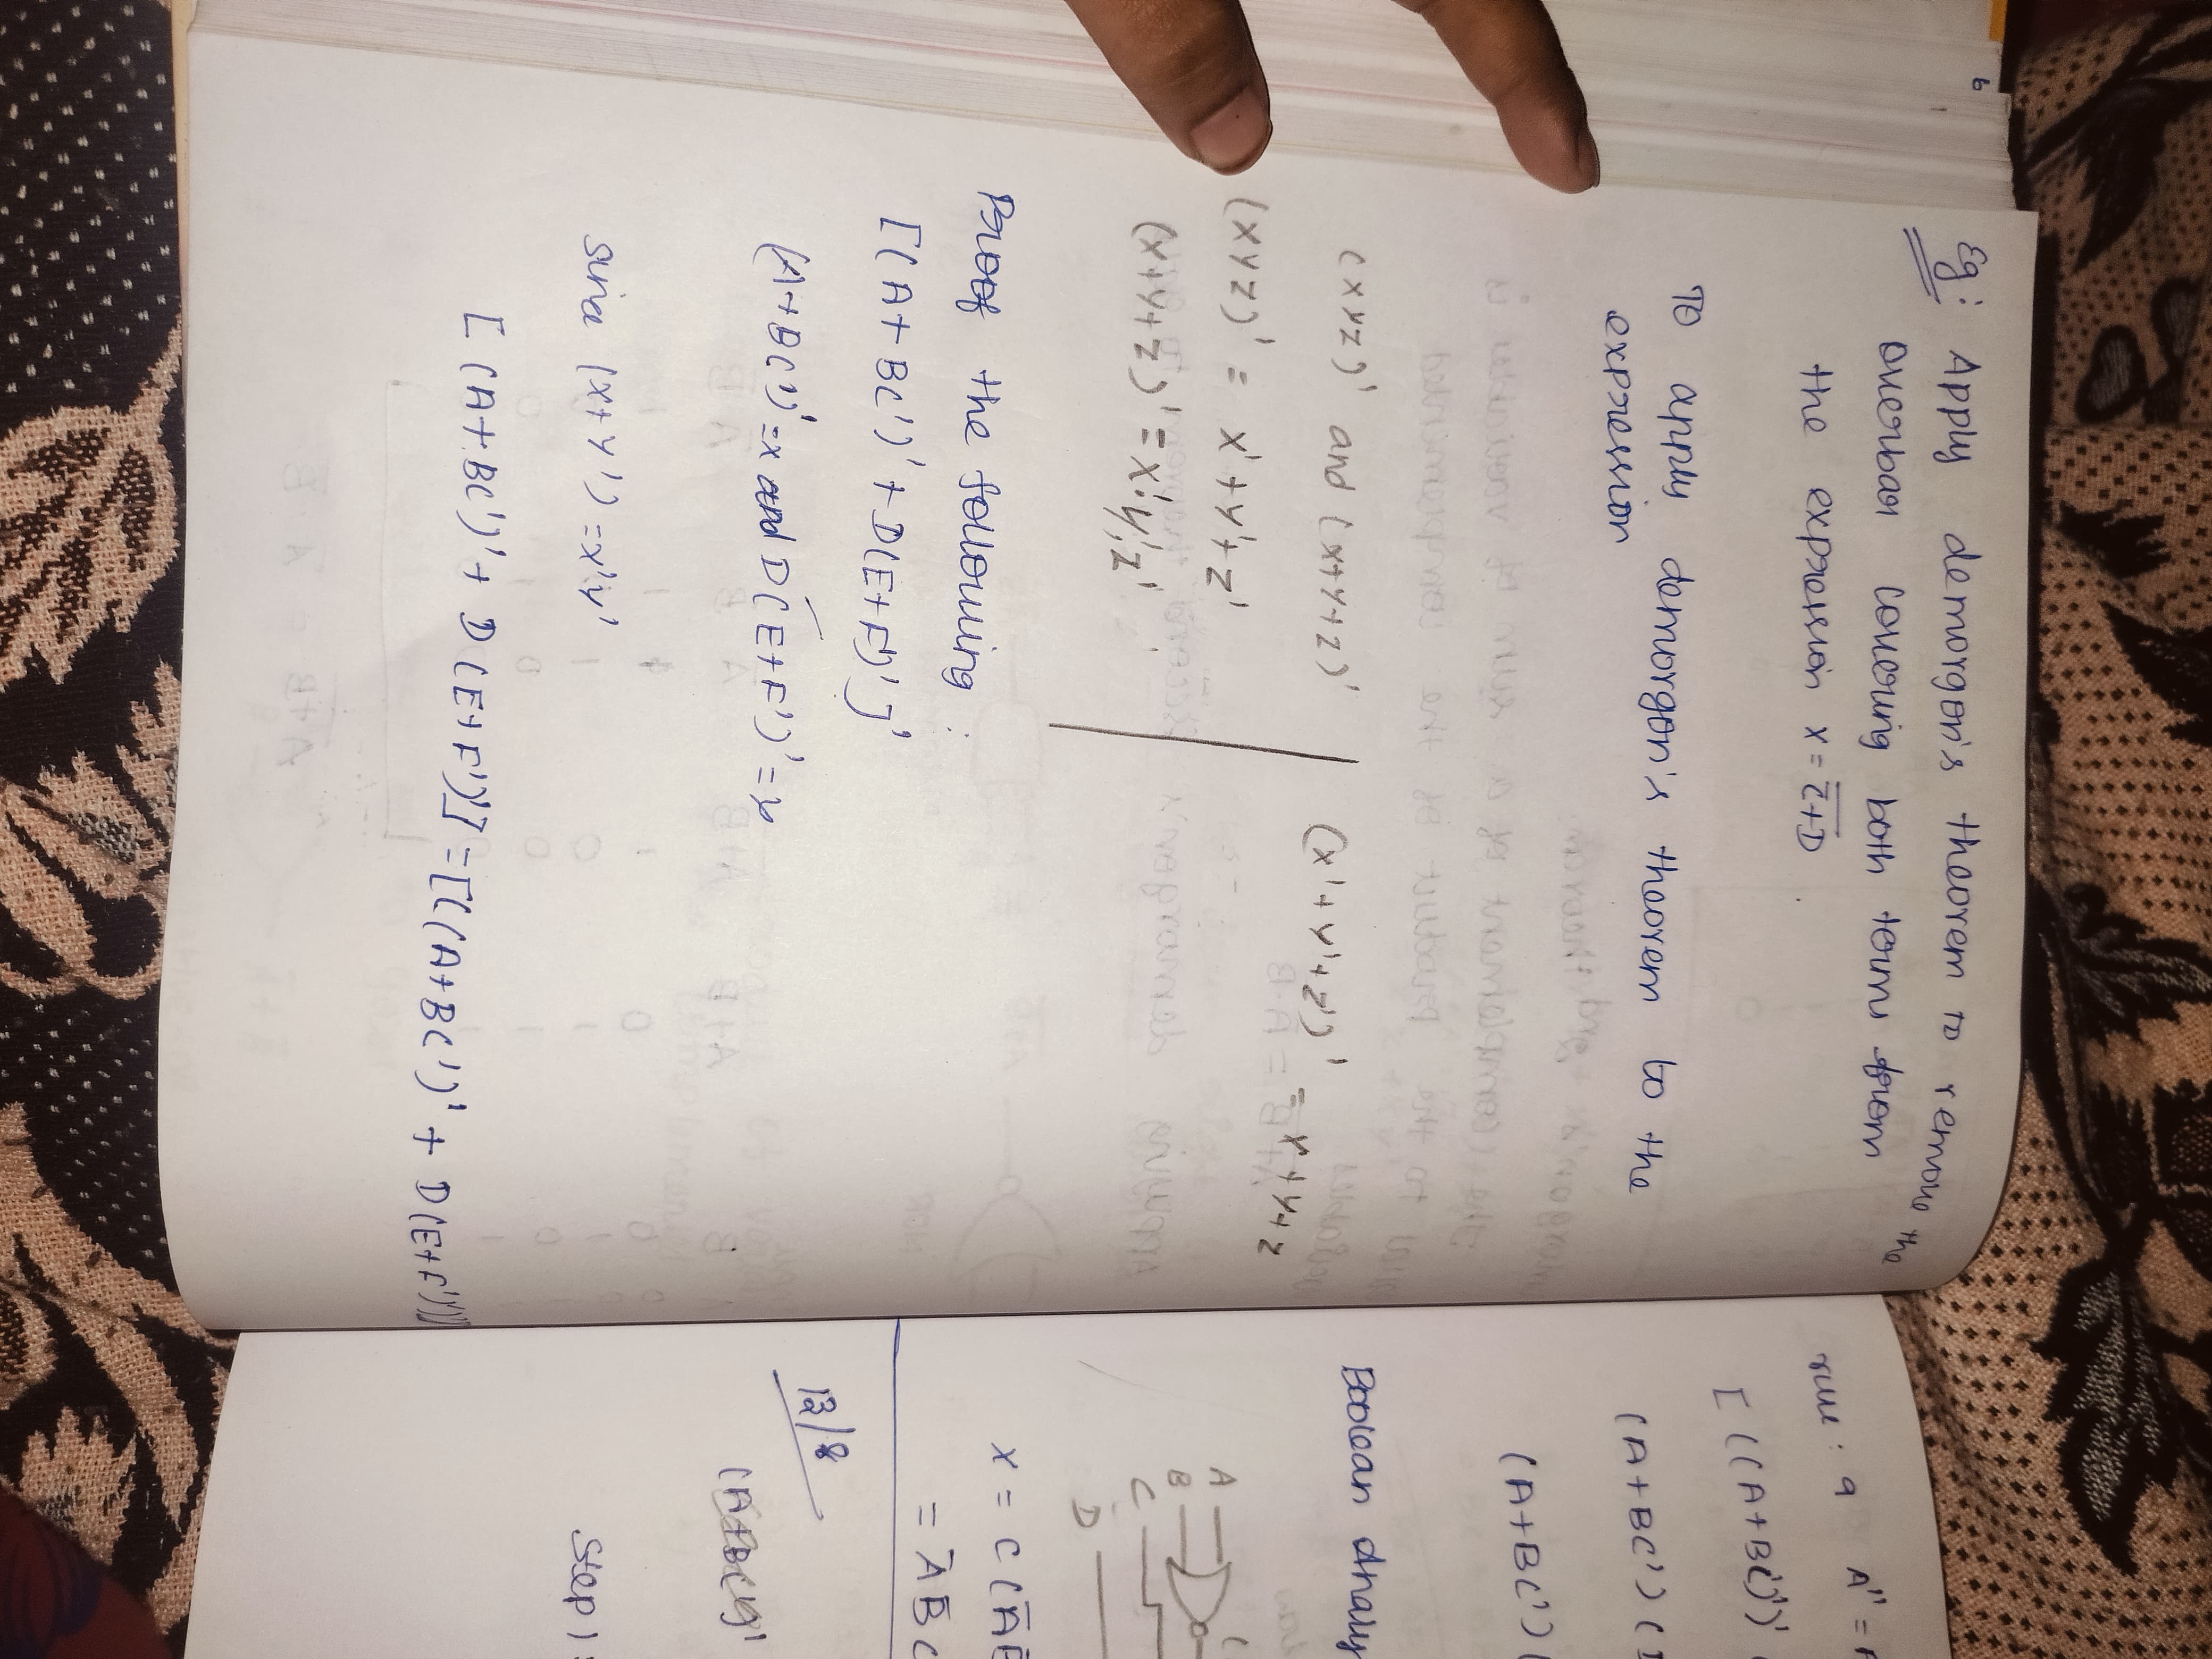 Eg: Apply demorgan's theorem to remove the
overbar covering both terms from
the expression x = \overline{\overline{C}+D}
To apply demorgan's theorem to the
expression
(xyz)' and (x+y+z)'
(xyz)' = x'+y'+z'
(x+y+z)' = x'.y'.z'
(x'+y'+z')' = x+y+z
Proof the following:
[(A+BC')' + D(E+F')']'
(A+BC')' = x and D(E+F')' = y
(x+y') = x'y'
[(A+BC')' + D(E+F')']' = [((A+BC')' + D(E+F')')]
rule: 9 A'' =
[((A+BC')')'
(A+BC')(
(A+BC')(
Boolean
A
B
C
D
x = C(
= \overline{A}\overline{B}C
12/8
Step 1: